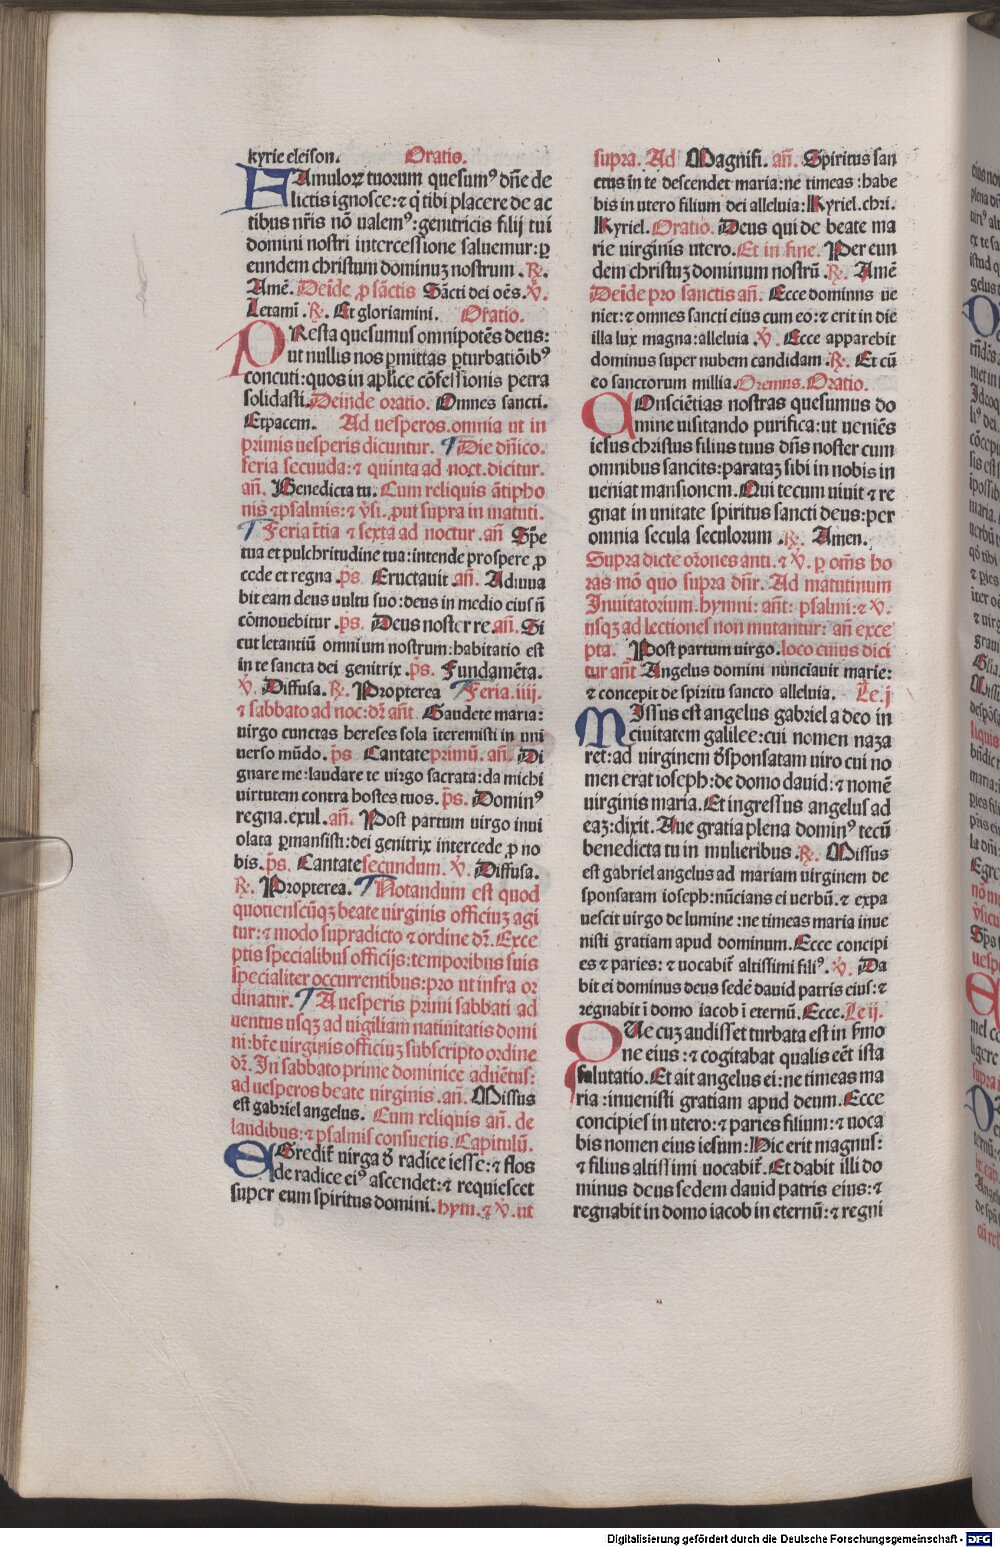 kyrie eleison. Oratio.
FAmuloꝝ tuorum quesumꝰ dn̄e de
lictis ignosce: ⁊ q̇ tibi placere de ac
tibus nr̄is nō valemꝰ: genitricis filij tui
domini nostri intercessione saluemur: ꝑ
eundem christum dominuꝫ nostrum. ℟.
Amē. Deīde ꝓ sāctis Sācti dei oēs. ℣.
Letami. ℟. Et gloriamini. Oratio.
PResta quesumus omnipotēs deus:
ut nullis nos ꝑmittas ꝑturbatiōibꝰ
concuti: quos in apl̓ice cōfessionis petra
solidasti. Deinde oratio. Omnes sancti.
Et pacem. Ad uesperos. omnia ut in
primis uesperis dicuntur. ¶ Die dn̄ico.
feria secunda: ⁊ quinta ad noct. dicitur.
an̄. Benedicta tu. Cum reliquis ātipho
nis ⁊ psalmis: ⁊ v̄si. ꝓut supra in matuti.
¶ Feria t̄tia ⁊ sexta ad noctur. an̄ Spē
tua et pulchritudine tua: intende prospere ꝓ
cede et regna. p̄s. Eructauit. an̄. Adiuua
bit eam deus uultu suo: deus in medio eius n̄
cōmouebitur. p̄s. Deus noster re. an̄. Si
cut letantiū omnium nostrum: habitatio est
in te sancta dei genitrix. p̄s. Fundamēta.
℣. Diffusa. ℟. Propterea ¶ Feria. iiij.
⁊ sabbato ad noc: dr̄ an̄t Gaudete maria:
uirgo cunctas hereses sola īteremisti in uni
uerso mūdo. p̄s Cantate primū. an̄. Di
gnare me: laudare te uirgo sacrata: da michi
uirtutem contra hostes tuos. p̄s. Dominꝰ
regna. exul. an̄. Post partum uirgo inui
olata ꝑmansisti: dei genitrix intercede ꝓ no
bis. p̄s. Cantate secundum. ℣. Diffusa.
℟. Propterea. ¶ Notandum est quod
quotienscūqꝫ beate uirginis officiuꝫ agi
tur: ⁊ modo supradicto ⁊ ordine dr̄. Exce
ptis specialibus officijs: temporibus suis
specialiter occurrentibus: pro ut infra or
dinatur. ¶ A uesperis primi sabbati ad
uentus usqꝫ ad uigiliam natiuitatis domi
ni: bt̄e uirginis officiuꝫ subscripto ordine
dr̄. In sabbato prime dominice aduētus:
ad uesperos beate uirginis. an̄. Missus
est gabriel angelus. Cum reliquis an̄. de
laudibus: ⁊ psalmis consuetis. Capitulū.
EGredit̄ uirga d̄ radice iesse: ⁊ flos
de radice eiꝰ ascendet: ⁊ requiescet
super eum spiritus domini. hym. ⁊ ℣. ut
supra. Ad Magnifi. an̄. Spiritus san
ctus in te descendet maria: ne timeas: habe
bis in utero filium dei alleluia: Kyriel. chri.
Kyriel. Oratio. Deus qui de beate ma
rie uirginis utero. Et in fine. Per eun
dem christuꝫ dominum nostrū. ℟. Amē
Deīde pro sanctis an̄. Ecce dominus ue
niet: ⁊ omnes sancti eius cum eo: ⁊ erit in die
illa lux magna: alleluia. ℣. Ecce apparebit
dominus super nubem candidam. ℟. Et cū
eo sanctorum millia. Oremus. Oratio.
COnsciētias nostras quesumus do
mine uisitando purifica: ut ueniēs
iesus christus filius tuus dn̄s noster cum
omnibus sancits: parataꝫ sibi in nobis in
ueniat mansionem. Qui tecum uiuit ⁊ re
gnat in unitate spiritus sancti deus: per
omnia secula seculorum. ℟. Amen.
Supra dicte or̄ones anti. ⁊ ℣. ꝑ om̄s ho
ras mō quo supra dn̄r. Ad matutinum
Inuitatorium. hymni: an̄t: psalmi: ⁊ ℣.
usqꝫ ad lectiones non mutantur: an̄ exce
pta. Post partum uirgo. loco cuius dici
tur an̄t Angelus domini nunciauit marie:
⁊ concepit de spiritu sancto alleluia. Le. j
MIssus est angelus gabriel a deo in
ciuitatem galilee: cui nomen naza
ret: ad uirginem d̄sponsatam uiro cui no
men erat ioseph: de domo dauid: ⁊ nomē
uirginis maria. Et ingressus angelus ad
eaꝫ: dixit. Aue gratia plena dominꝰ tecū
benedicta tu in mulieribus. ℟. Missus
est gabriel angelus ad mariam uirginem de
sponsatam ioseph: nūcians ei uerbū. ⁊ expa
uescit uirgo de lumine: ne timeas maria inue
nisti gratiam apud dominum. Ecce concipi
es ⁊ paries: ⁊ uocabit̄ altissimi filiꝰ. ℣. Da
bit ei dominus deus sedē dauid patris eius: ⁊
regnabit ī domo iacob ī eternū. Ecce. Le ij.
QUe cuꝫ audisset turbata est in s̄mo
ne eius: ⁊ cogitabat qualis eēt ista
salutatio. Et ait angelus ei: ne timeas ma
ria: inuenisti gratiam apud deum. Ecce
concipies in utero: ⁊ paries filium: ⁊ uoca
bis nomen eius iesum: Hic erit magnus:
⁊ filius altissimi uocabit̄. Et dabit illi do
minus deus sedem dauid patris eius: ⁊
regnabit in domo iacob in eternū: ⁊ regni
Digitalisierung gefördert durch die Deutsche Forschungsgemeinschaft - DFG